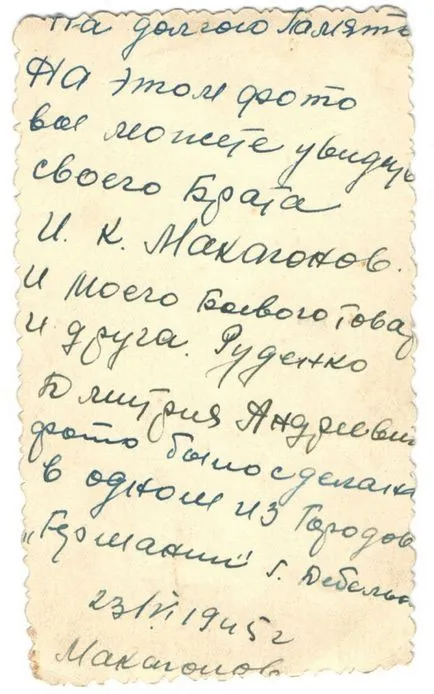 На долгою Памят
На этом фото
вы можете увидить
своего Брата
И. К. Макагонов.
И моего Боевого Това
и друга. Руденко
Дмитрия Андреевич
фото было сделан
в одном из Городов
„Германии" г. Дебельн
23/VI 1945 г
Макагонов